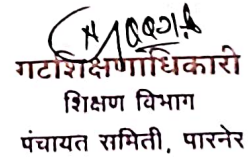 गटशिक्षणाधिकारी
शिक्षण विभाग
पंचायत समिती, पारनेर